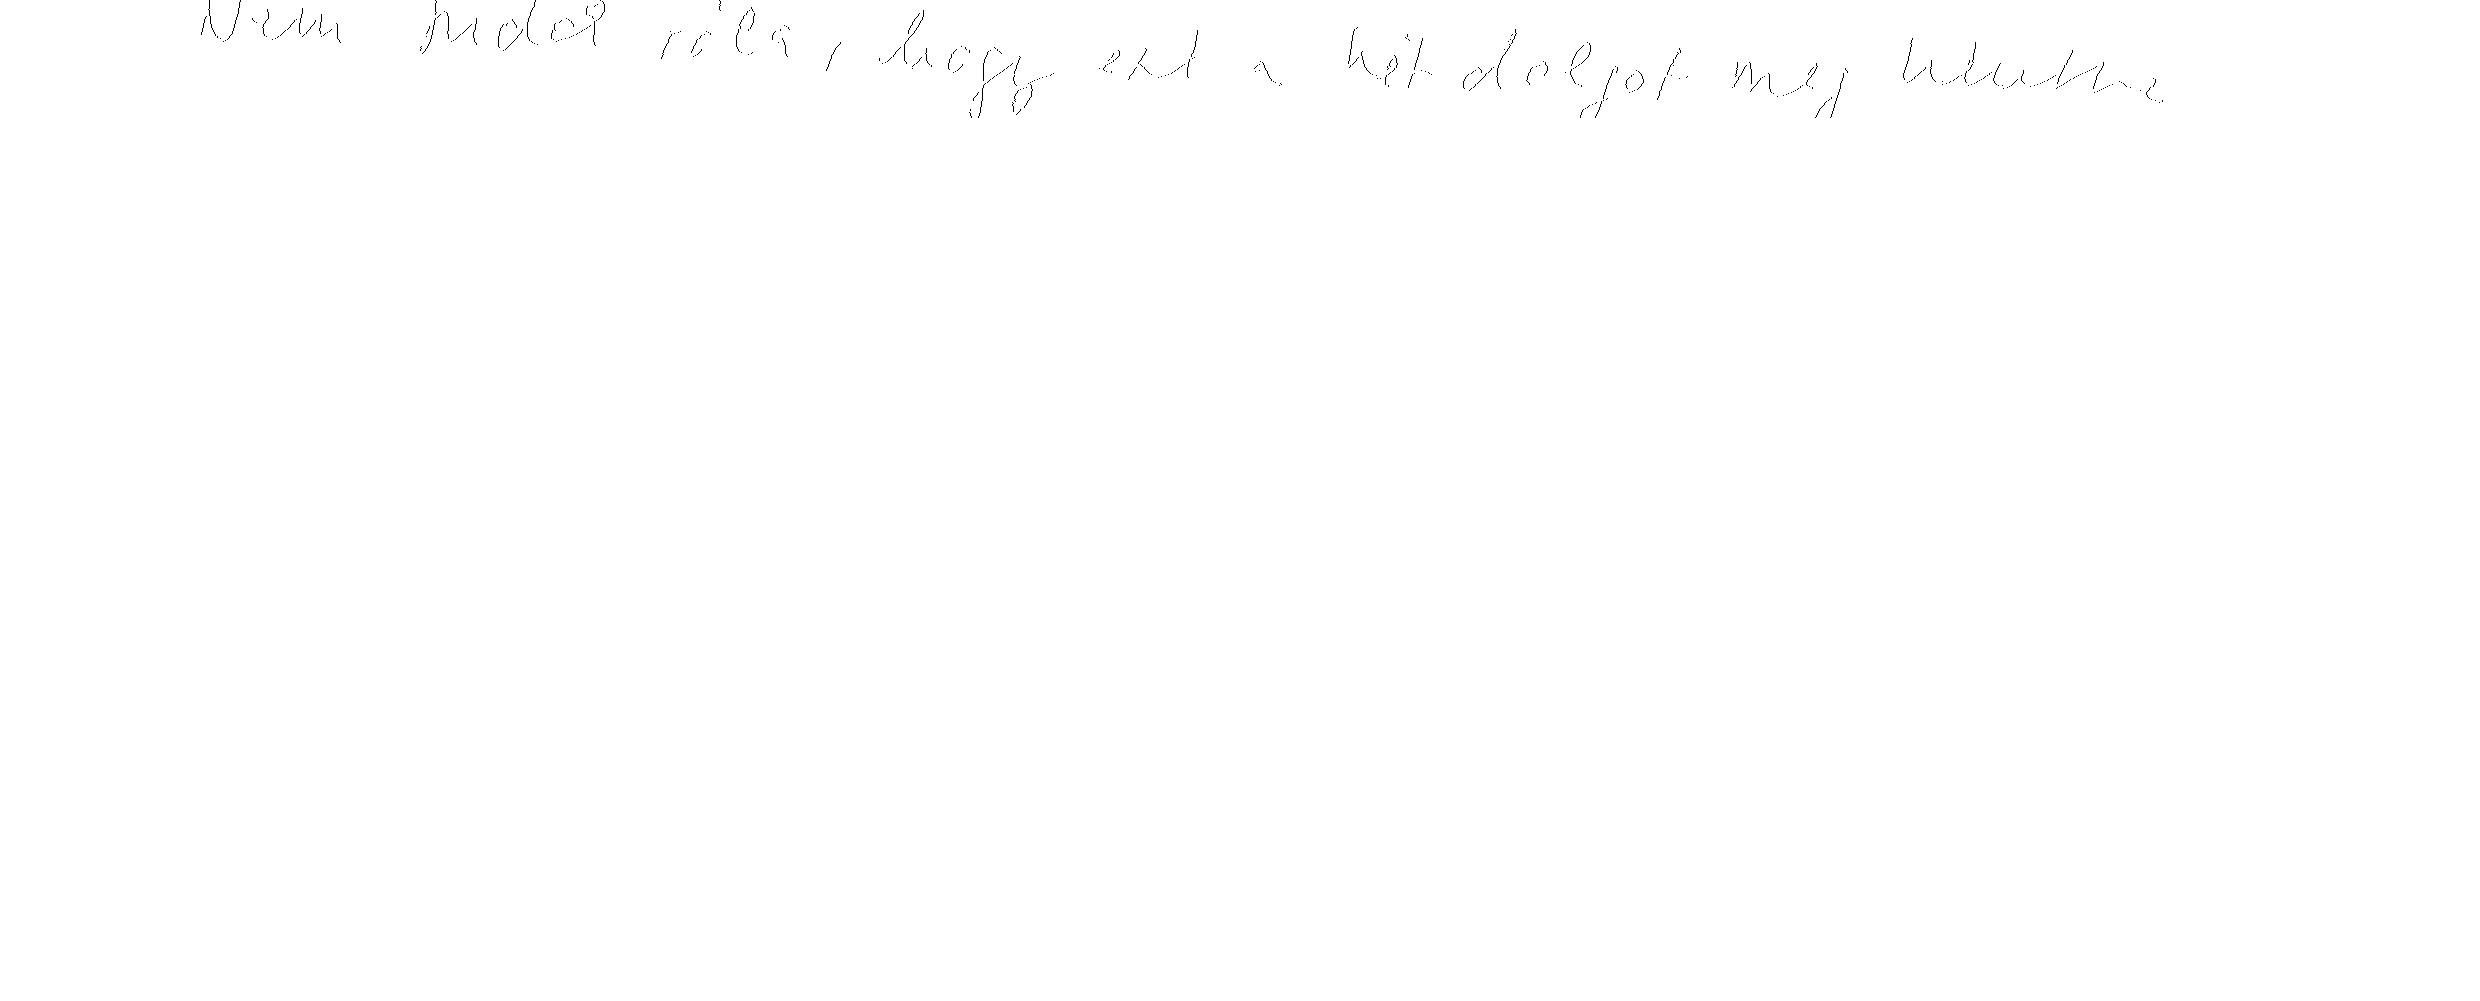 Nem tudok róla, hogy ezt a két dolgot meg lehetett